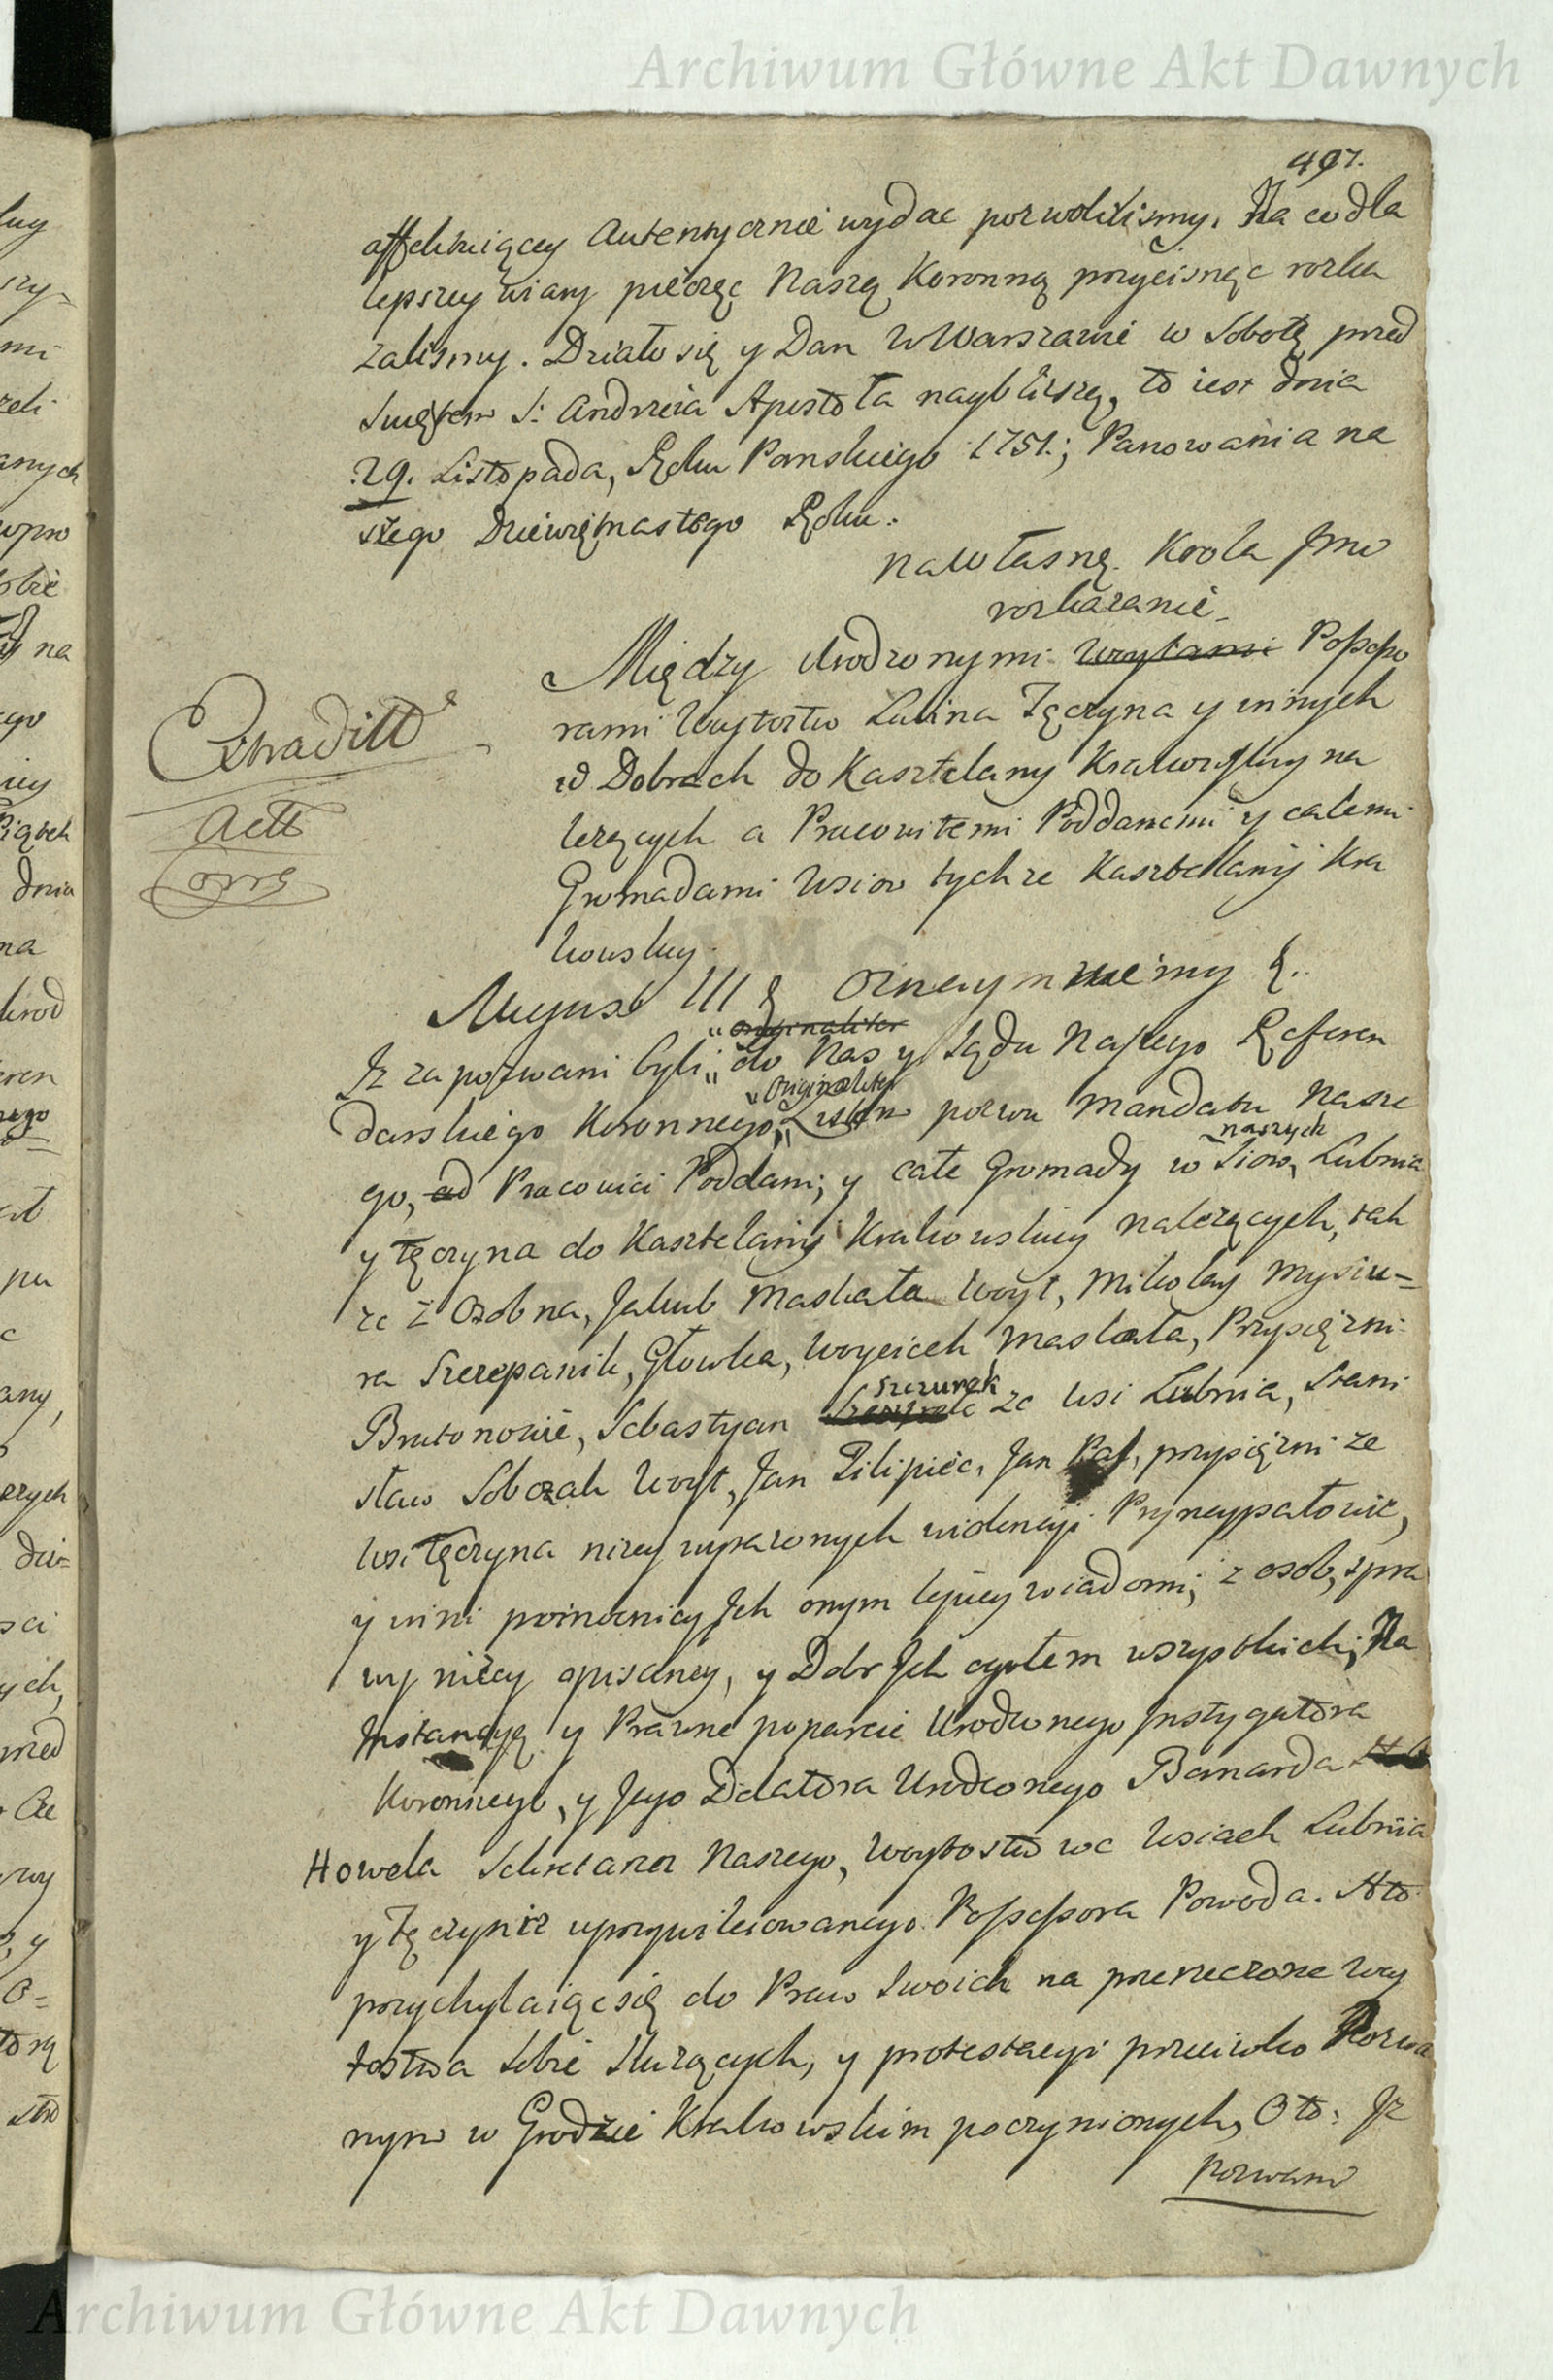 Archiwum Główne Akt Dawnych
497.
affektuiącey autentycznie wydac pozwolilismy. Na co dla
lepszey wiary pieczęc Naszą Koronną przycisnąc rozka
zalismy. Działo się y Dan w Warszawie w Sobotę przed
Swiętem S: Andrzeia Apostoła nayblizszą, to iest dnia
29. Listopada, Roku Panskiego 1751.; Panowania na
szego Dziewiętnastego Roku.
na własne Krola Jmo
rozkazanie
Między Urodzonymi Woytami Possesso
rami Woytostw Lubina Tęczyna y innych
w Dobrach do Kasztelany Krakowskiey na
lezących a Pracowitemi Poddanemi y całemi
Gromadami Wsiow tychze Kasztelanij Kra
kowskey.
Extradit
Actt
Corr
August III & Oznaymuiemy &.
originaliter
Jz zapozwani byli do Nas y Sądu Naszego Referen
Originaliter
darskiego Koronnego, Listem pozwu Mandatu Nasze
naszych
go, ad Pracowici Poddani, y całe Gromady w Siow, Lubnia
y tęczyna do Kasztelanij Krakowskiey nalezących, tak
ze z Osobna, Jakub Maskała Woyt, Mikołay Mysiu=
ra Szczepanik, Głowka, Woyciech Maskała, Przysięzni
szczurek
Brutonowie, Sebastyan ze wsi Lubnia, Stani
sław Sobczak Woyt, Jan Pilipiec, Jan, przysięzni ze
wsi tęczyna nizey wyrazonych widencyi Pryncypałowie,
y inni pomocnicy Jch onym lepiey wiadomi, z osob, spra
wy nizey opisaney, y Dobr Jch ogułem wszystkich, Na
Jnstancyę y Prawne poparcie Urodzonego Jnstygatora
Koronnego, y Jego Delatora Urodzonego Bernarda
Howela Sekretarza Naszego, Woytostw we Wsiach Lubnia
y Tęczynie uprzywileiowanego Possessora Powoda. Ato
przychylaiąc się do Praw Swoich na przerzeczone Woy
tostwa Sobie Słuzących, y protestacyi przeciwko Pozwa
nym w Grodzie Krakowskim poczynionych, Oto: Jz
Pozwani
Archiwum Główne Akt Dawnych